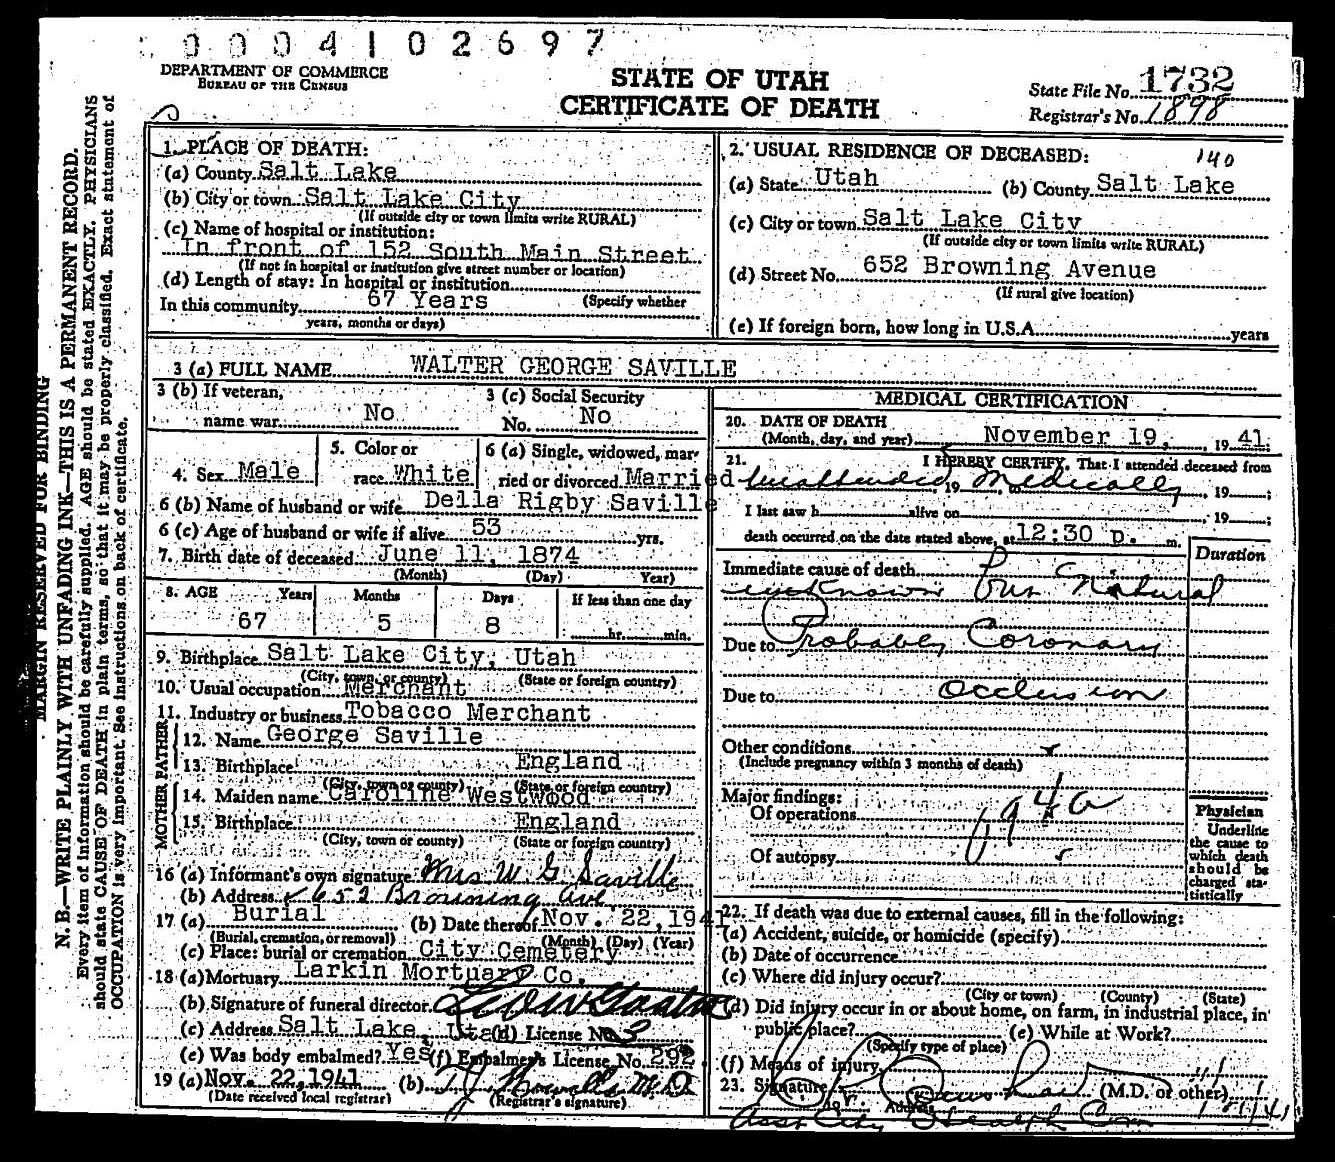 0004102697
DEPARTMENT OF COMMERCE
BUREAU OF THE CENSUS
STATE OF UTAH
CERTIFICATE OF DEATH
State File No. 1732
Registrar's No. 1898
MARGIN RESERVED FOR BINDING
N. B.—WRITE PLAINLY WITH UNFADING INK—THIS IS A PERMANENT RECORD.
Every item of information should be carefully supplied. AGE should be stated EXACTLY. PHYSICIANS
should state CAUSE OF DEATH in plain terms, so that it may be properly classified. Exact statement of
OCCUPATION is very important. See instructions on back of certificate.
1. PLACE OF DEATH:
(a) County Salt Lake
(b) City or town Salt Lake City
(If outside city or town limits write RURAL)
(c) Name of hospital or institution:
In front of 152 South Main Street
(If not in hospital or institution give street number or location)
(d) Length of stay: In hospital or institution
In this community 67 Years (Specify whether
years, months or days)
2. USUAL RESIDENCE OF DECEASED: 140
(a) State Utah (b) County Salt Lake
(c) City or town Salt Lake City
(If outside city or town limits write RURAL)
(d) Street No. 652 Browning Avenue
(If rural give location)
(e) If foreign born, how long in U.S.A. years
3 (a) FULL NAME WALTER GEORGE SAVILLE
3 (b) If veteran,
name war No
3 (c) Social Security
No. No
4. Sex Male
5. Color or
race White
6 (a) Single, widowed, mar-
ried or divorced Married
6 (b) Name of husband or wife Della Rigby Saville
6 (c) Age of husband or wife if alive 53 yrs.
7. Birth date of deceased June 11, 1874
(Month) (Day) Year)
8. AGE Years Months Days If less than one day
67 5 8 hr. min.
9. Birthplace Salt Lake City, Utah
(City, town, or county) (State or foreign country)
10. Usual occupation Merchant
11. Industry or business Tobacco Merchant
FATHER
12. Name George Saville
13. Birthplace England
(City, town or county) (State or foreign country)
MOTHER
14. Maiden name Caroline Westwood
15. Birthplace England
(City, town or county) (State or foreign country)
16 (a) Informant's own signature Mrs W G Saville
(b) Address 652 Browning Ave
17 (a) Burial (b) Date thereof Nov. 22, 1941
(Burial, cremation, or removal) (Month) (Day) (Year)
(c) Place: burial or cremation City Cemetery
18 (a) Mortuary Larkin Mortuary Co.
(b) Signature of funeral director
(c) Address Salt Lake, Utah (d) License No. 3
(e) Was body embalmed? Yes (f) Embalmer's License No. 292.
19 (a) Nov. 22, 1941 (b) M.D.
(Date received local registrar) (Registrar's signature)
MEDICAL CERTIFICATION
20. DATE OF DEATH
(Month, day, and year) November 19, 1941
21. I HEREBY CERTIFY, That I attended deceased from
Unattended, 19 to Medically, 19 ;
I last saw h alive on , 19 ;
death occurred on the date stated above, at 12:30 p. m.
Duration
Immediate cause of death
unknown But Natural
Due to Probably Coronary
Due to occlusion
Other conditions
(Include pregnancy within 3 months of death)
Major findings:
Of operations 94a
Of autopsy
Physician
Underline
the cause to
which death
should be
charged sta-
tistically
22. If death was due to external causes, fill in the following:
(a) Accident, suicide, or homicide (specify)
(b) Date of occurrence
(c) Where did injury occur?
(City or town) (County) (State)
(d) Did injury occur in or about home, on farm, in industrial place, in
public place? (e) While at Work?
(Specify type of place)
(f) Means of injury
23. Signature (M.D. or other)
Address
Asst City Health Com